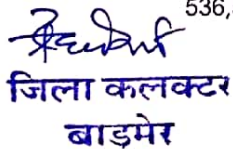 536,
जिला कलक्टर
बाड़मेर